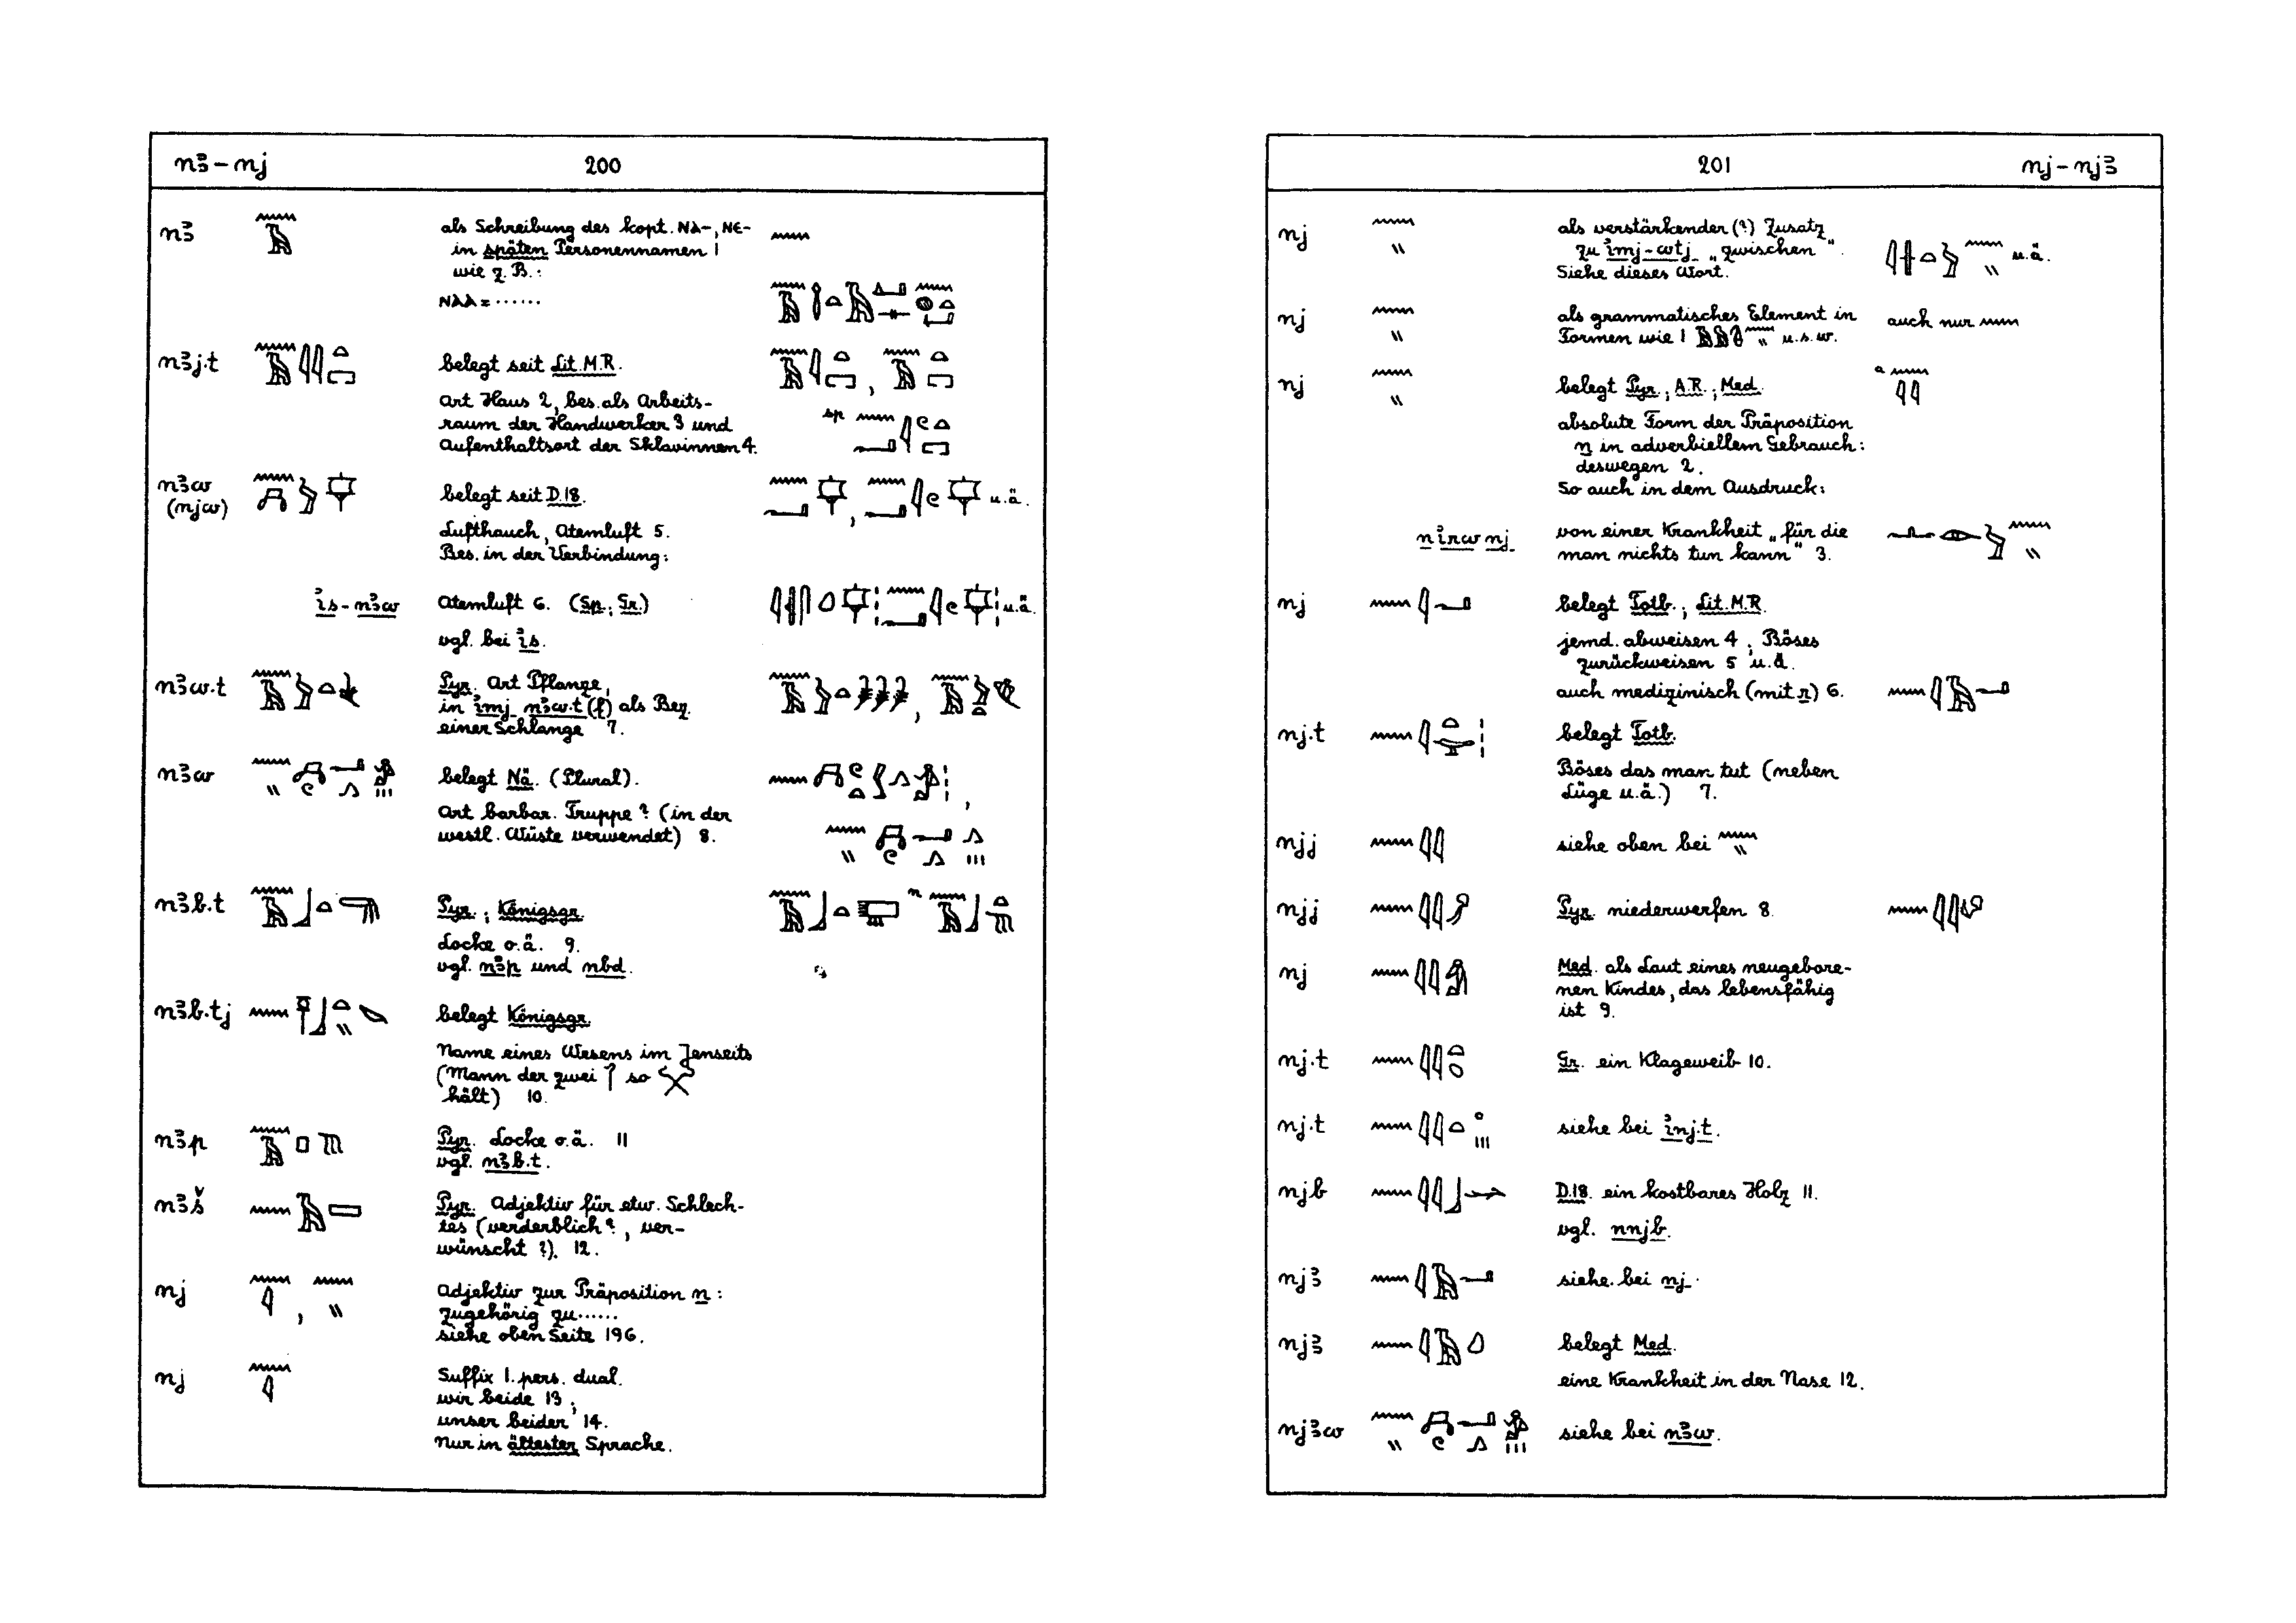 nꜣ – nj 200
nꜣ als Schreibung des kopt. ⲚⲀ-, ⲚⲈ-
in späten Personennamen 1
wie z. B.:
ⲚⲀⲀ = ······
nꜣj.t belegt seit Lit. M.R.
Art Haus 2, bes. als Arbeits-
raum der Handwerker 3 und
Aufenthaltsort der Sklavinnen 4.
sp
nꜣw belegt seit D.18. u.ä.
(njw)
Lufthauch, Atemluft 5.
Bes. in der Verbindung:
i͗s - nꜣw Atemluft 6. (Sp.; Gr.) u.ä.
vgl. bei i͗s.
nꜣw.t Pyr. Art Pflanze,
in i͗mj nꜣw.t (f) als Bez.
einer Schlange 7.
nꜣw belegt Nä. (Plural).
Art barbar. Truppe? (in der
westl. Wüste verwendet) 8.
nꜣb.t Pyr.; Königsgr. n
Locke o.ä. 9.
vgl. nꜣp und nbd.
nꜣb.tj belegt Königsgr.
Name eines Wesens im Jenseits
(Mann der zwei so
hält) 10.
nꜣp Pyr. Locke o.ä. 11
vgl. nꜣb.t.
nꜣš Pyr. Adjektiv für etw. Schlech-
tes (verderblich?, ver-
wünscht?). 12.
nj Adjektiv zur Präposition n:
zugehörig zu······
siehe oben Seite 196.
nj Suffix 1. pers. dual.
wir beide 13;
unser beider 14.
Nur in ältester Sprache.
201 nj – njꜣ
nj als verstärkender (?) Zusatz
zu i͗mj-wtj „zwischen“. u.ä.
Siehe dieses Wort.
nj als grammatisches Element in auch nur
Formen wie 1 u.s.w.
nj belegt Pyr.; A.R.; Med. a
absolute Form der Präposition
n in adverbiellem Gebrauch:
deswegen 2.
So auch in dem Ausdruck:
n i͗rw nj von einer Krankheit „für die
man nichts tun kann“ 3.
nj belegt Totb.; Lit. M.R.
jemd. abweisen 4; Böses
zurückweisen 5 u.ä.
auch medizinisch (mit r) 6.
nj.t belegt Totb.
Böses das man tut (neben
Lüge u.ä.) 7.
njj siehe oben bei
njj Pyr. niederwerfen 8.
nj Med. als Laut eines neugebore-
nen Kindes, das lebensfähig
ist 9.
nj.t Gr. ein Klageweib 10.
nj.t siehe bei i͗nj.t.
njb D.18. ein kostbares Holz 11.
vgl. nnjb.
njꜣ siehe bei nj.
njꜣ belegt Med.
eine Krankheit in der Nase 12.
njꜣw siehe bei nꜣw.